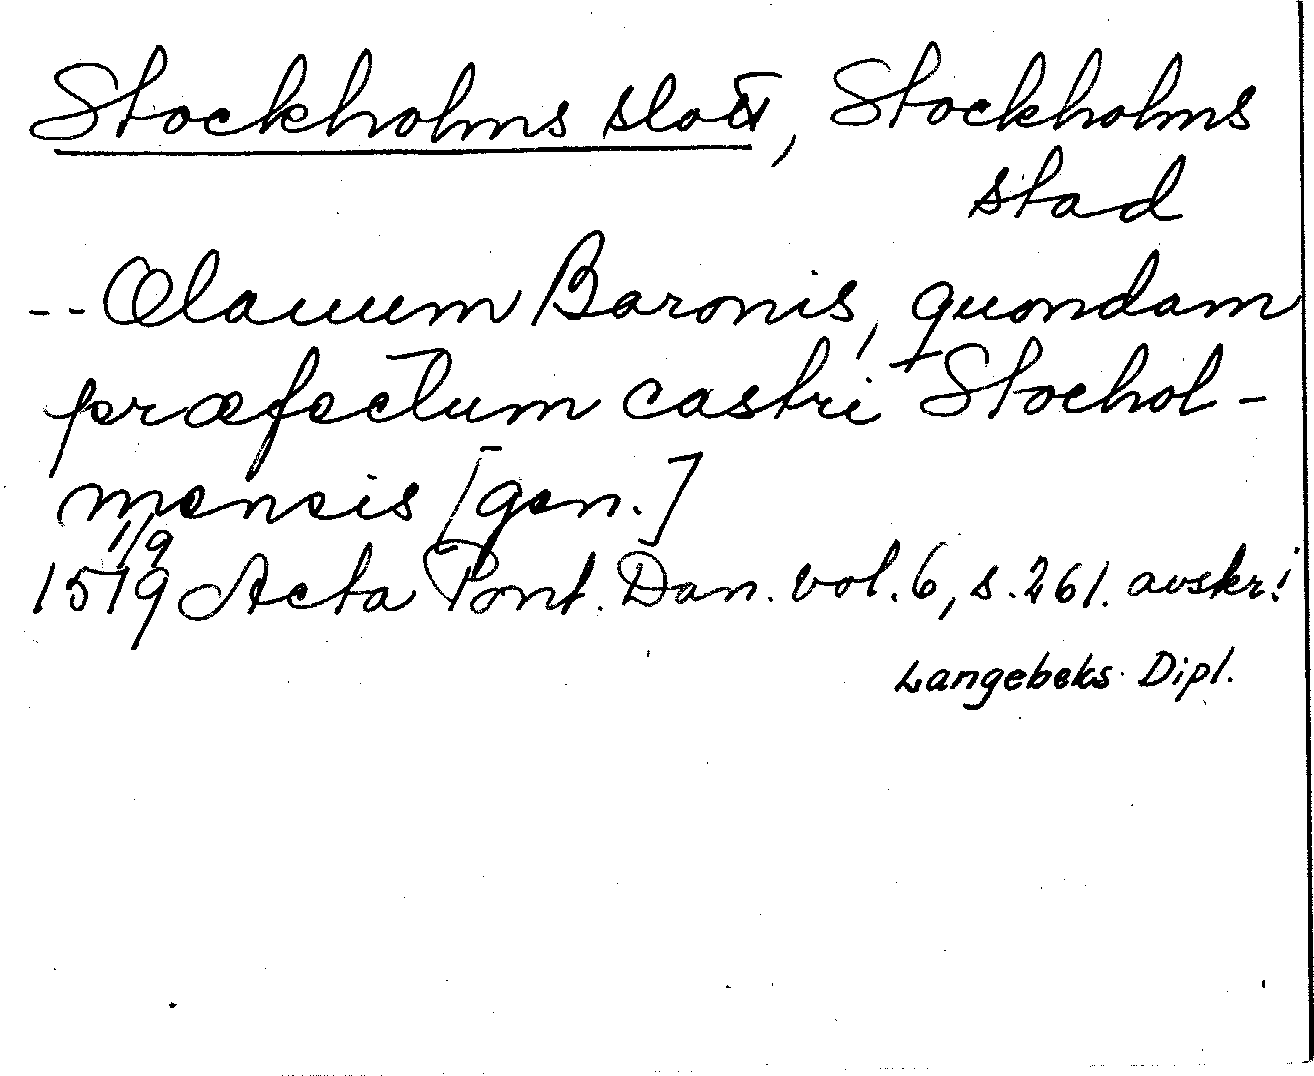 Stockholms slott, Stockholms
stad
-- Olauum Baronis, quondam
præfectum castri Stochol-
mensis [gen.]
1/9
1519 Acta Pont. Dan. vol. 6, s. 261. avskr.!
Langebeks Dipl.